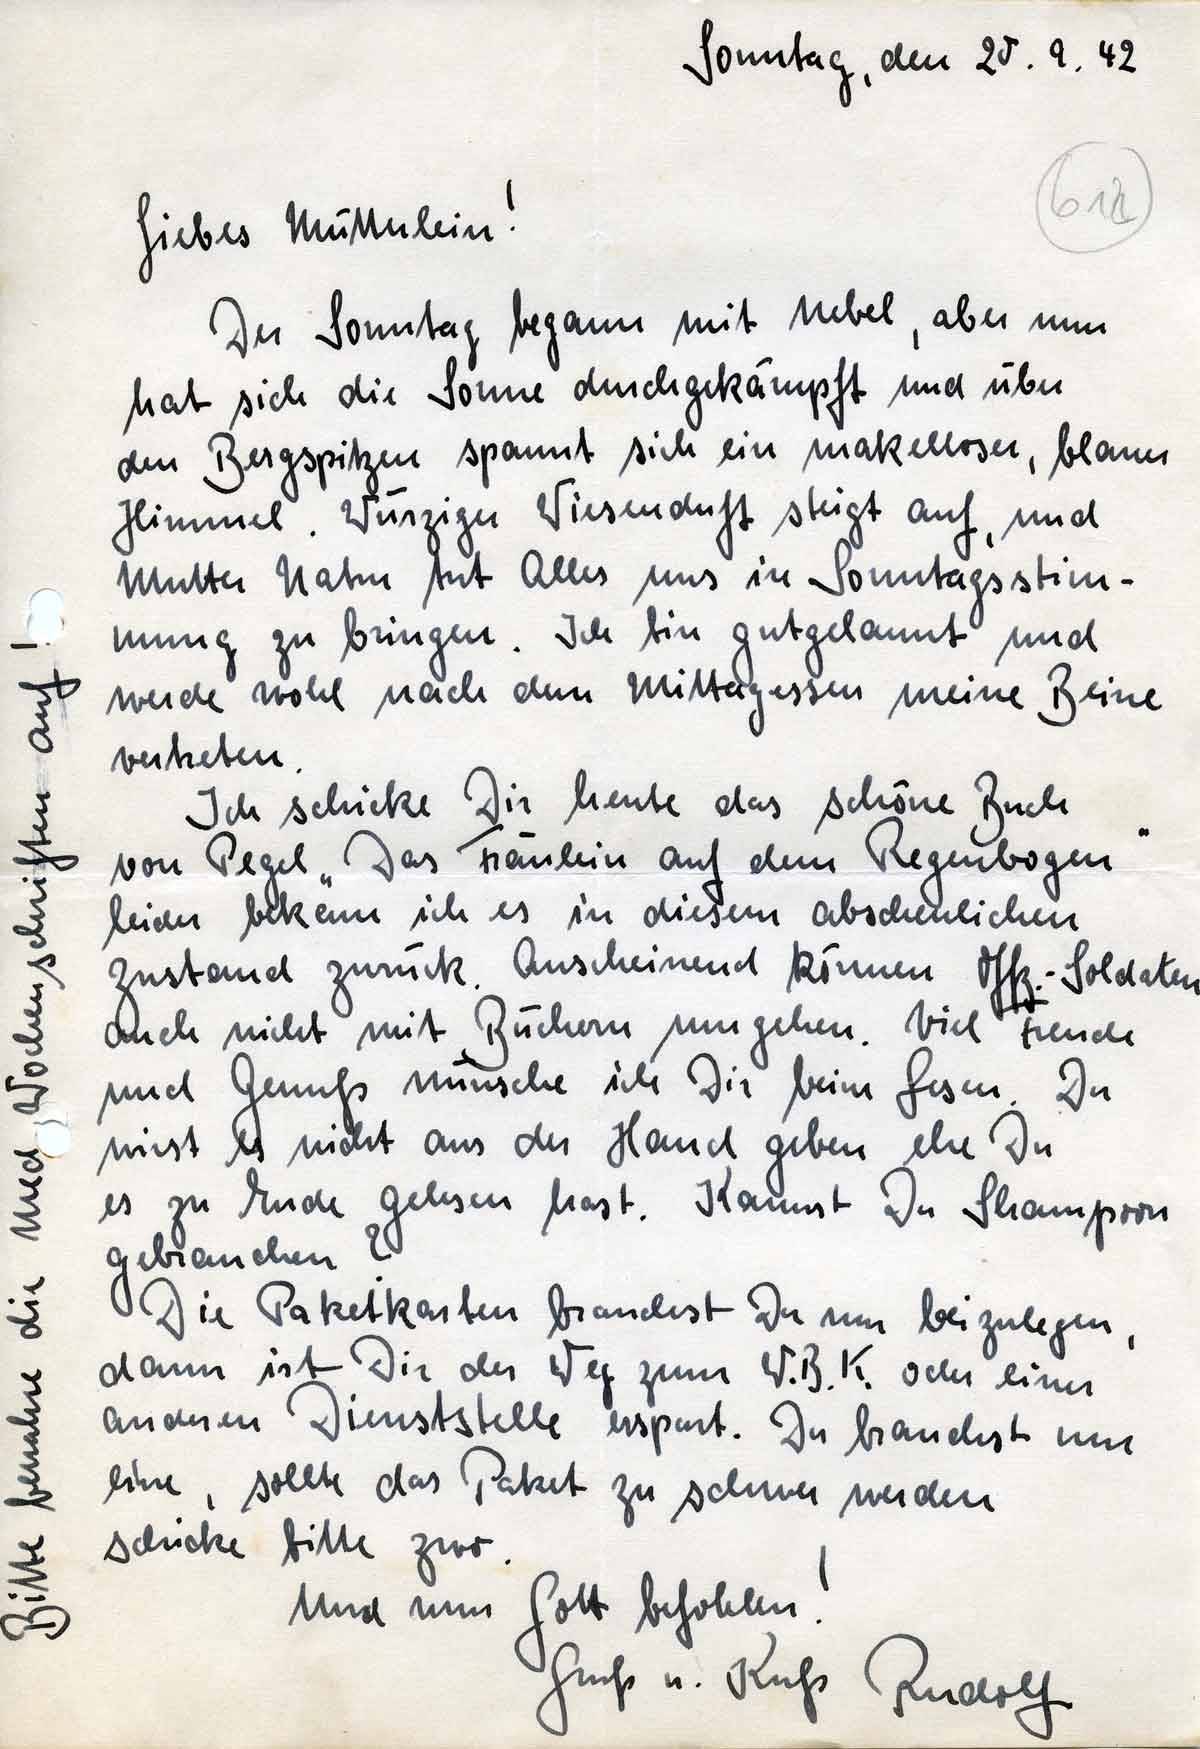 Sonntag, den 20. 9. 42
612
Liebes Mütterlein!
Der Sonntag begann mit Nebel, aber nun
hat sich die Sonne durchgekämpft und über
den Bergspitzen spannt sich ein makelloser, blauer
Himmel. Würziger Wiesenduft steigt auf, und
Mutter Natur tut Alles uns in Sonntagsstim-
mung zu bringen. Ich bin gutgelaunt und
werde wohl nach dem Mittagessen meine Beine
vertreten.
Ich schicke Dir heute das schöne Buch
von Pegel „Das Fräulein auf dem Regenbogen"
leider bekam ich es in diesem abscheulichen
Zustand zurück. Anscheinend können Offz.-Soldaten
auch nicht mit Büchern umgehen. Viel Freude
und Genuß wünsche ich Dir beim Lesen. Du
wirst es nicht aus der Hand geben ehe Du
es zu Ende gelesen hast. Kannst Du Shampoon
gebrauchen?
Die Paketkarten brauchst Du nur beizulegen,
dann ist Dir der Weg zum W.B.K. oder einer
anderen Dienststelle erspart. Du brauchst nur
eine, sollte das Paket zu schwer werden
schicke bitte zwo.
Und nun Gott befohlen!
Gruß u. Kuß Rudolf
Bitte bewahre die Med. Wochenschriften auf!